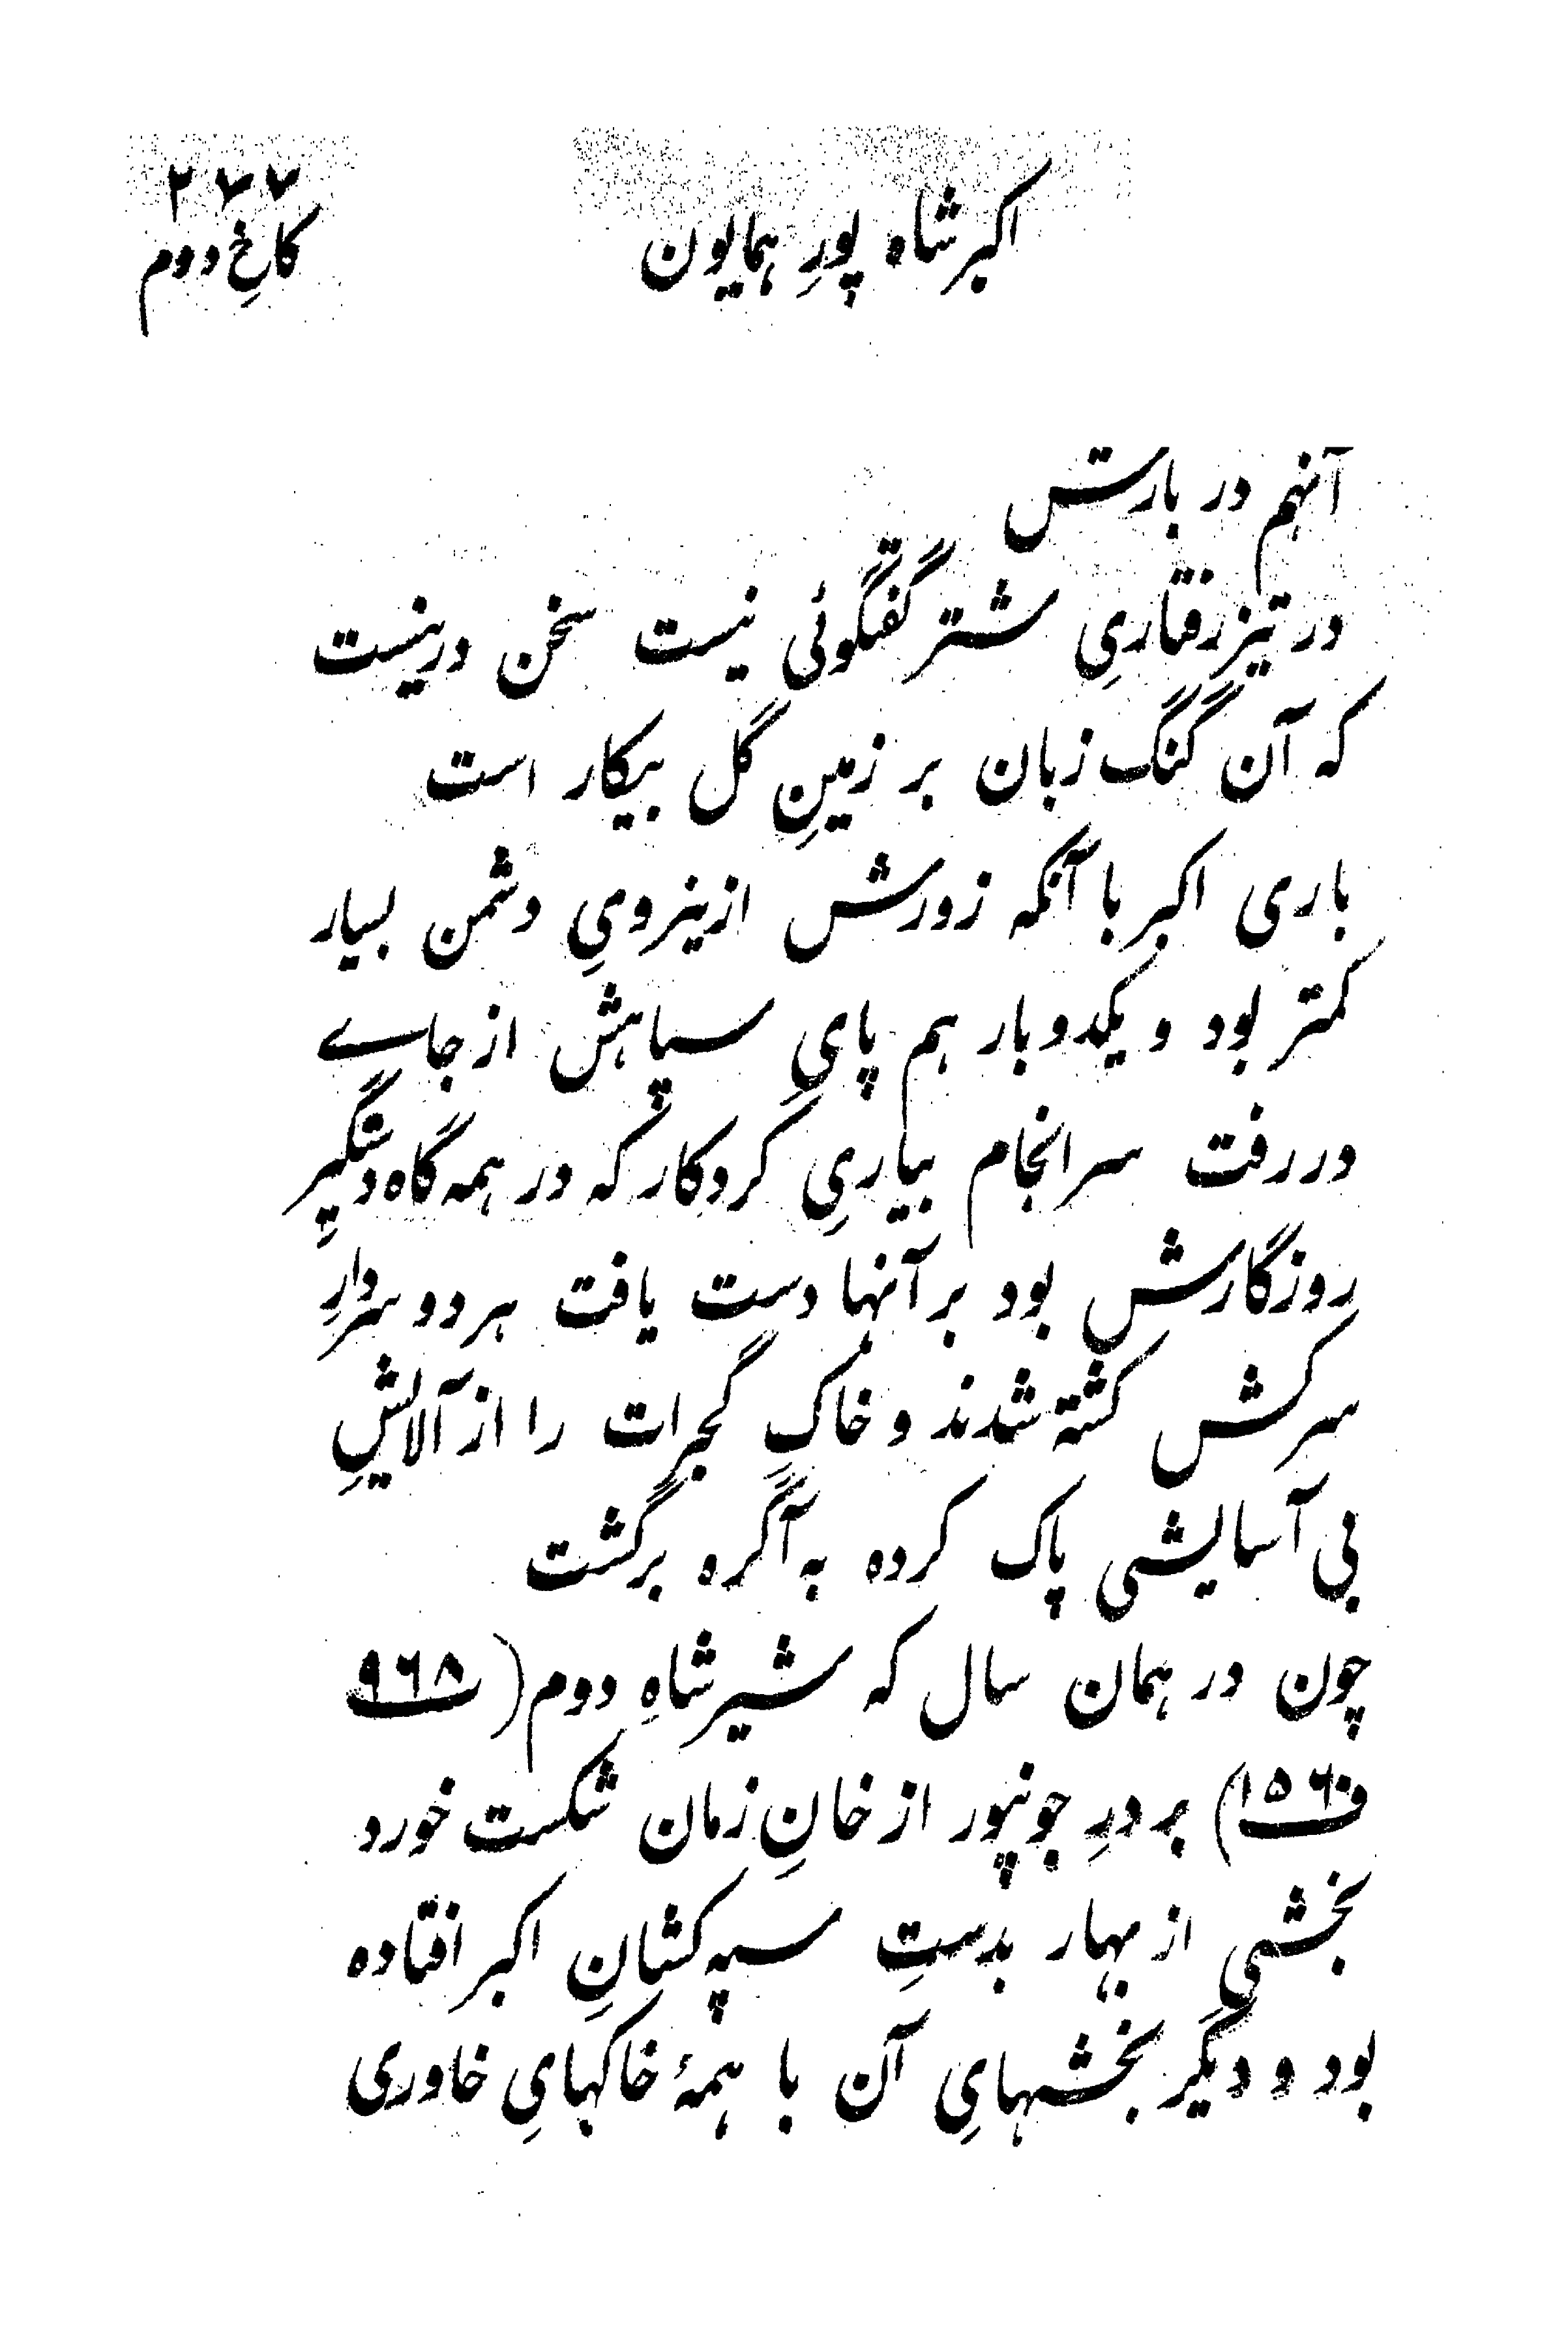 ۲۷۷
اکبر شاه پورِ همایون
کاخِ دوم
آنهم در بارش
در تیز رفتاریِ شتر گفتگوئی نیست سخن درینست
که آن گنگ زبان بر زمینِ گل بیکار است
باری اکبر با آنکه زورش از نیرویِ دشمن بسیار
کمتر بود و یکدو بار هم پایِ سپاهش از جاے
در رفت سرانجام بیاریِ کردکار که در همه گاه دستگیرِ
روزگارش بود بر آنها دست یافت هر دو سردارِ
سرکش کشته شدند و خاکِ گجرات را از آلایشِ
بی آسایشی پاک کرده به آگره برگشت
چون در همان سال که شیر شاهِ دوم (۹۶۸
ف ۱۵۶۰) بر درِ جونپور از خانِ زمان شکست خورد
بخشی از بهار بدستِ سپه کشانِ اکبر افتاده
بود و دیگر بخشهایِ آن با همهٔ خاکهایِ خاوری